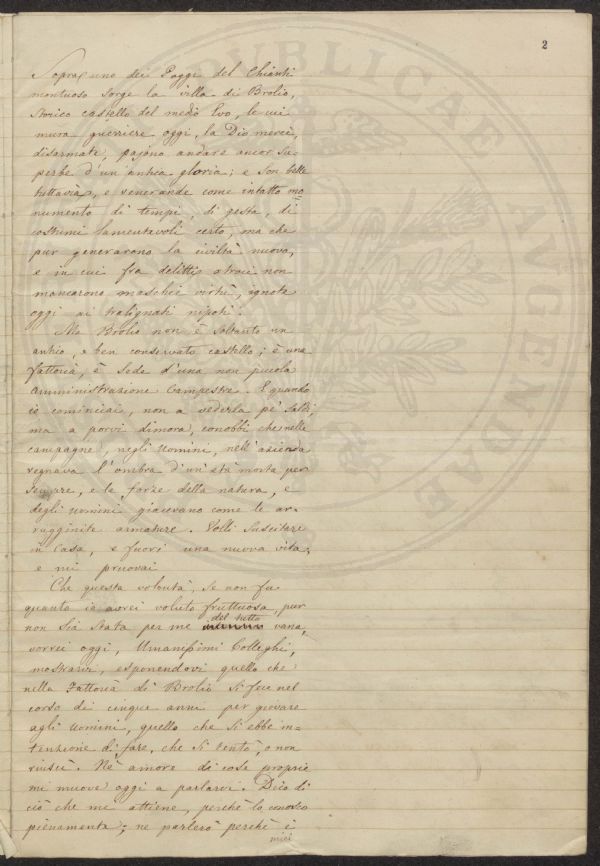 2
Sopra uno dei Poggi del Chianti
montuoso sorge la villa di Brolio,
storico castello del medio Evo, le cui
mura guerriere oggi, la Dio mercè,
disarmate, pajono andare ancor su-
perbe d'un'antica gloria; e son belle
tuttavia, e venerande come intatto mo
numento di tempi, di gesta, di
costumi lamentevoli certo, ma che
pur generarono la civiltà nuova,
e in cui fra delitti atroci non
mancarono maschie virtù, ignote
oggi ai tralignati nipoti.
Ma Brolio non è soltanto un
antico, e ben conservato castello; è una
fattoria, è sede d'una non piccola
amministrazione campestre. E quando
io cominciai, non a vederla pe' soldi,
ma a porvi dimora, conobbi che nelle
campagne, negli uomini, nell'azienda
regnava l'ombra d'un'età morta per
sempre, e le forze della natura, e
degli uomini giacevano come le ar-
rugginite armature. Volli suscitare
in casa, e fuori una nuova vita;
e mi provai
Che questa volontà, se non fu
quanto io avrei voluto fruttuosa, pur
non sia stata per me del tutto vana,
vorrei oggi, Umanissimi Colleghi,
mostrarvi, esponendovi quello che
nella Fattoria di Brolio si fece nel
corso di cinque anni per giovare
agli uomini, quello che si ebbe in=
tenzione di fare, che si tentò, o non
riuscì. Nè amore di cose proprie
mi muove oggi a parlarvi. Dico di
ciò che me attiene, perchè lo conosco
pienamente; ne parlerò perchè i
miei
PUBLICAE